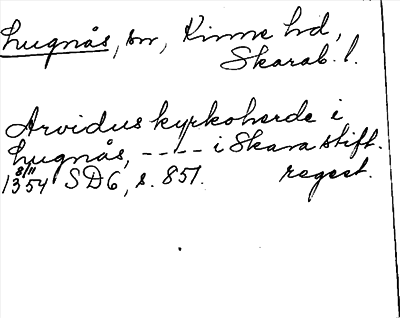 Lugnås, sn, Kinne hd,
Skarab. l.
Arvidus kyrkoherde i
Lugnås, ---- i Skara stift.
8/11
1354 SD6, s. 851. regest.